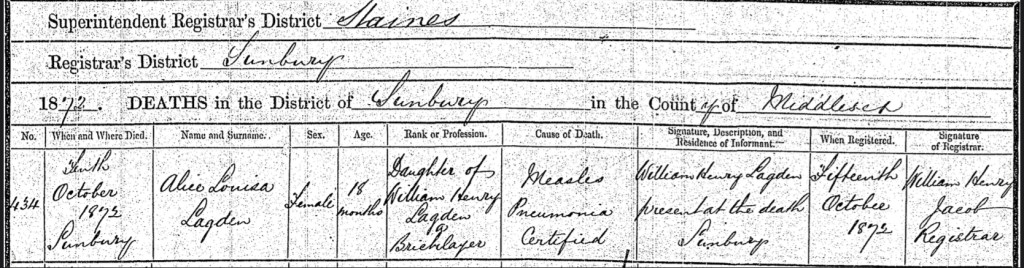 Superintendent Registrar's District Staines
Registrar's District Sunbury
1872. DEATHS in the District of Sunbury in the County of Middlesex
No. When and Where Died. Name and Surname. Sex. Age. Rank or Profession. Cause of Death. Signature, Description, and Residence of Informant.— When Registered. Signature of Registrar.
434
Tenth
October
1872
Sunbury
Alice Louisa
Lagden
Female
18
months
Daughter of
William Henry
Lagden
a
Bricklayer
Measles
Pneumonia
Certified
William Henry Lagden
present at the death
Sunbury
Fifteenth
October
1872
William Henry
Jacob
Registrar